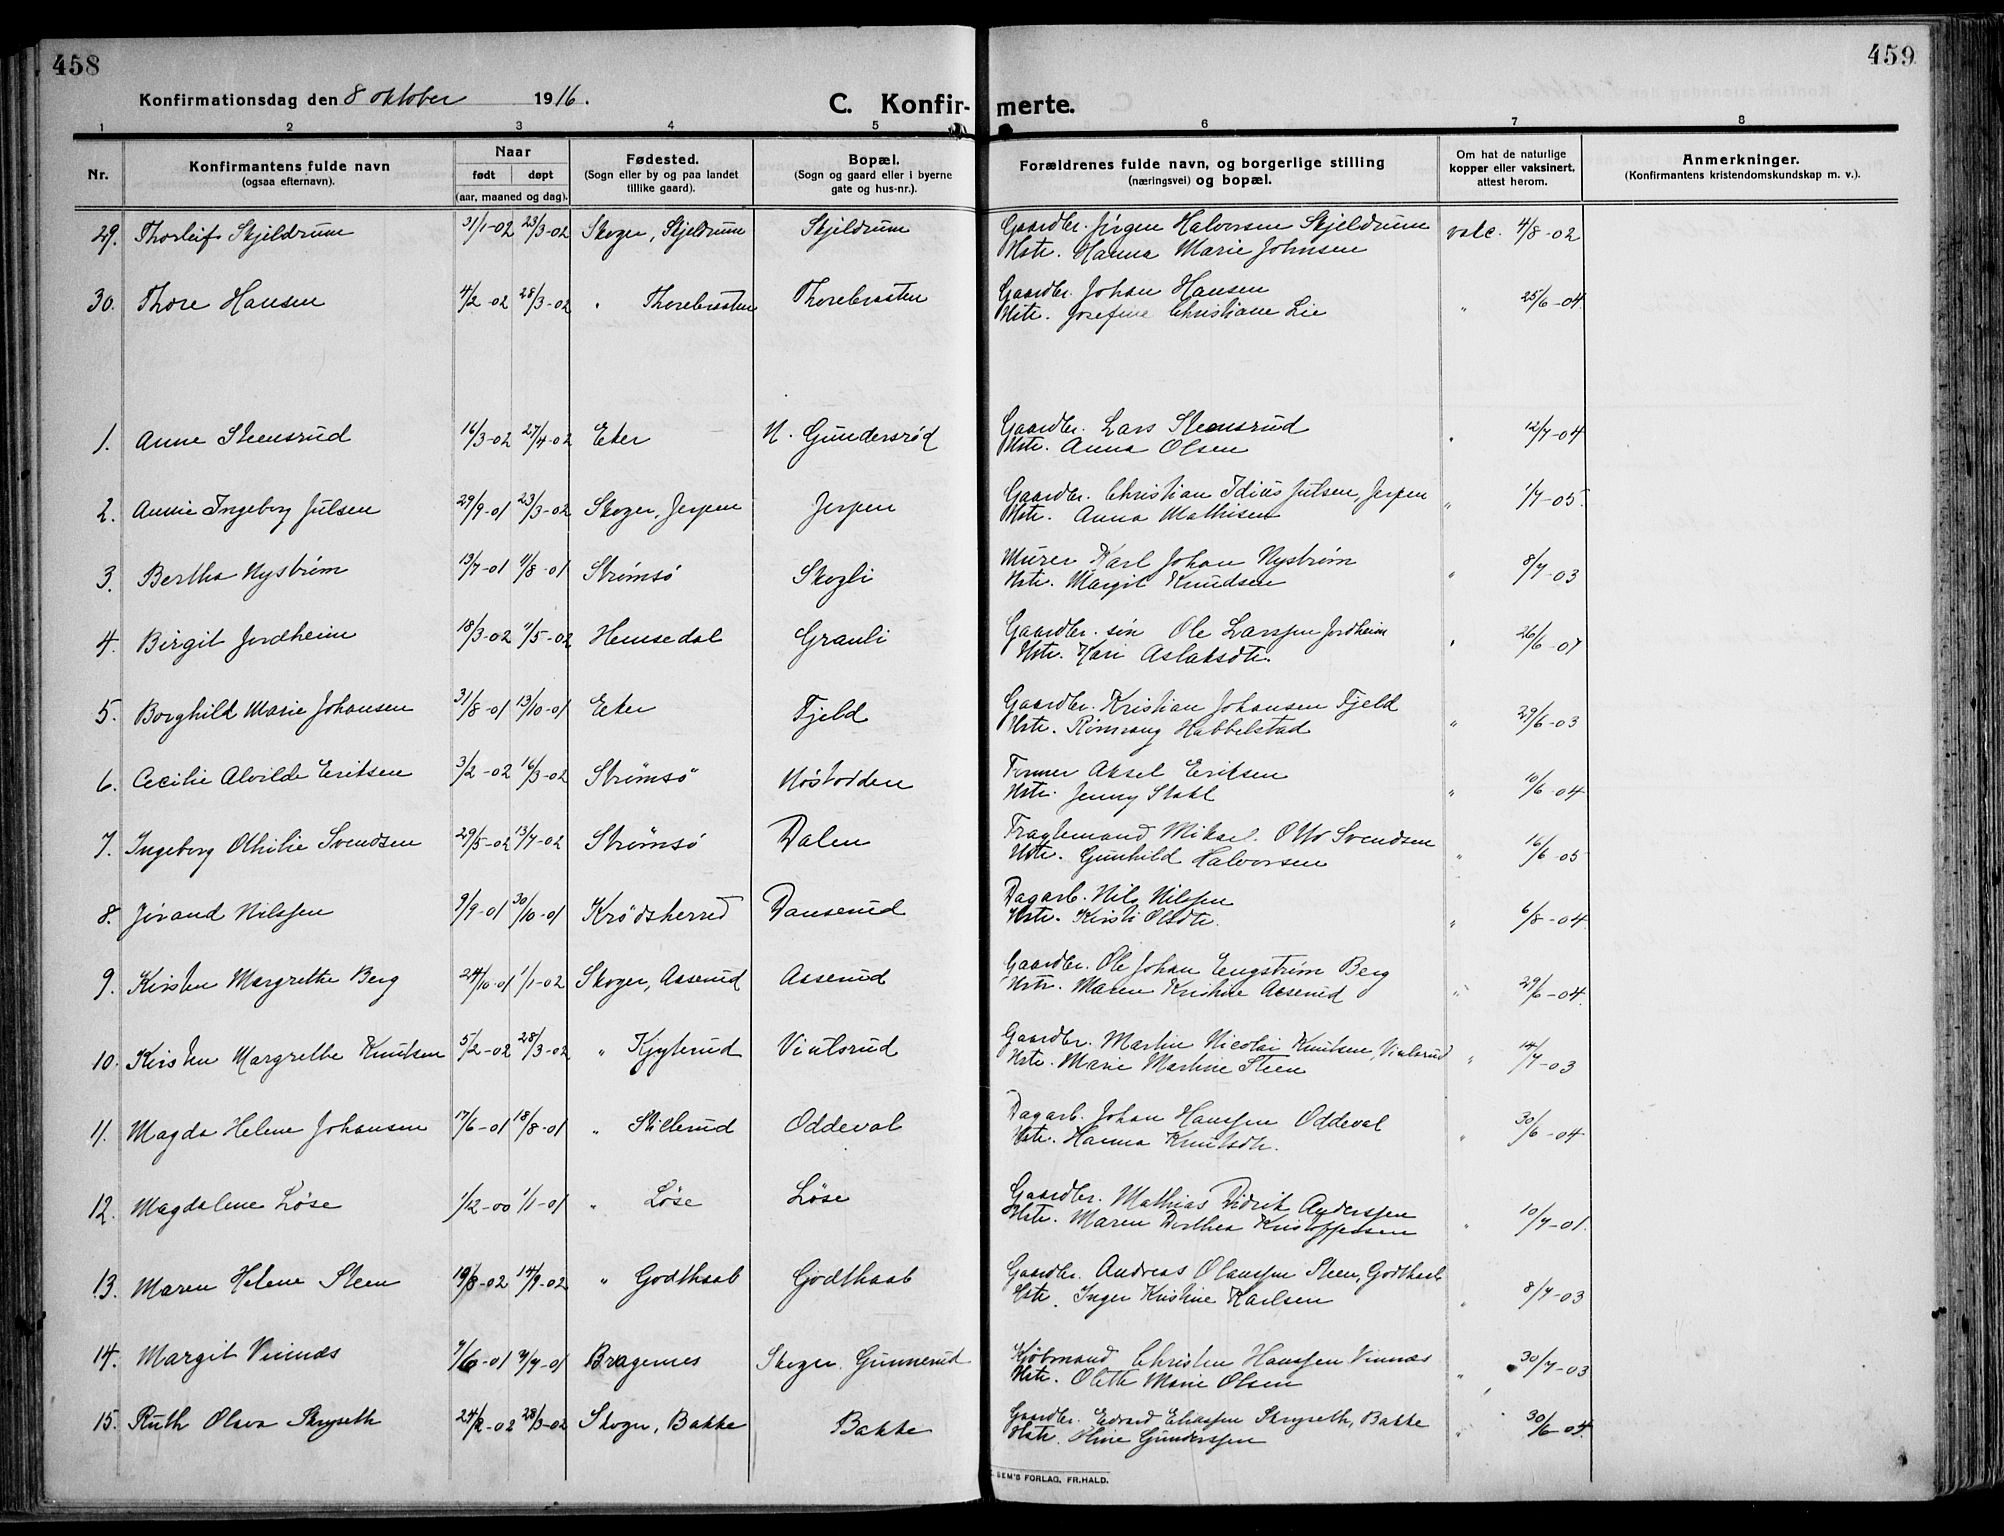 458
459
Konfirmationsdag den 8 oktober 1916.
C. Konfir- merte.
1 2 3 4 5 6 7 8
Nr.
Konfirmantens fulde navn
(ogsaa efternavn).
Naar
født døpt
(aar, maaned og dag).
Fødested.
(Sogn eller by og paa landet
tillike gaard).
Bopæl.
(Sogn og gaard eller i byerne
gate og hus-nr.).
Forældrenes fulde navn, og borgerlige stilling
(næringsvei) og bopæl.
Om hat de naturlige
kopper eller vaksinert,
attest herom.
Anmerkninger.
(Konfirmantens kristendomskundskap m. v.).
29. Thorleif Skjeldrum 31/1-02 23/3-02 Skoger, Skjeldrum Skjeldrum Gaardbr. Jørgen Halvorsen Skjeldrum vakc. 4/8-02
Hstr. Hanna Marie Johnsen
30. Thore Hansen 4/2-02 28/3-02 " Thorebraaten Thorebraaten Gaardbr. Johan Hansen " 25/6-04.
Hstr. Josefine Christiane Lie
1. Anne Steensrud 16/3-02 27/4-02 Eker N. Gundersrød Gaardbr. Lars Steensrud " 12/7-04
Hstr. Anna Olsen
2. Annie Ingeborg Julsen 29/9-01 23/3-02 Skoger, Jerpen Jerpen Gaardbr. Christian Idius Julsen, Jerpen " 1/7-05.
Hstr. Anna Mathisen
3. Bertha Nystrøm 13/7-01 11/8-01 Strømsø Skogli Murer Karl Johan Nystrøm " 8/7-03
Hstr. Margit Knudsen
4. Birgit Jordheim 18/3-02 11/5-02 Hemsedal Granli Gaardbr. søn Ole Larssen Jordheim " 26/6-07
Hstr. Kari Aslaksdtr.
5. Borghild Marie Johansen 31/8-01 13/10-01 Eker Fjeld Gaardbr. Kristian Johansen Fjeld " 29/6-03
Hstr. Rønnaug Habbelstad
6. Cecilie Alvilde Eriksen 3/2-02 16/3-02 Strømsø Møstodden Former Aksel Eriksen " 10/6-04
Hstr. Jenny Stahl
7. Ingeborg Othilie Svendsen 29/5-02 13/7-02 Strømsø Dalen Fragtemand Mikael Otto Svendsen " 16/6-05
Hstr. Gunhild Halvorsen
8. Jørand Nilssen 9/9-01 30/10-01 Krødsherred Danserud Dagarb. Nils Nilssen " 6/8-04.
Hstr. Kirsti Olsdtr.
9. Kirsten Margrethe Berg 24/10-01 1/1-02 Skoger, Asserud Asserud Gaardbr. Ole Johan Engstrøm Berg " 29/6-04.
Hstr. Maren Kristine Asserud
10. Kirsten Margrethe Knutsen 5/2-02 28/3-02 " Kjylerud Vintsrud Gaardbr. Martin Nicolai Knutsen, Vintsrud " 14/7-03
Hstr. Marie Martine Steen
11. Magda Helene Johansen 17/6-01 18/8-01 " Stillerud Oddeval Dagarb. Johan Hanssen Oddeval " 30/6-04
Hstr. Hanna Knutsdtr.
12. Magdalene Løse 1/12-00 1/1-01 " Løse Løse Gaardbr. Mathias Didrik Anderssen " 10/7-01.
Hstr. Maren Dorthea Kristoffersen
13. Maren Helene Steen 19/8-02 14/9-02 " Godthaab Godthaab Gaardbr. Andreas Olaussen Steen, Godthaab " 8/7-03
Hstr. Inger Kristine Karlsen
14. Margit Vinnæs 7/6-01 7/7-01 Bragernes Skoger, Gunnerud Kjøbmand Christen Hanssen Vinnæs " 30/7-03
Hstr. Oleth Marie Olsen
15. Ruth Olava Skryseth 24/2-02 28/3-02 Skoger, Bakke Bakke Gaardbr. Edvard Eliassen Skryseth, Bakke " 30/6-04.
Hstr. Oline Gunderssen
SEM'S FORLAG, FR.HALD.